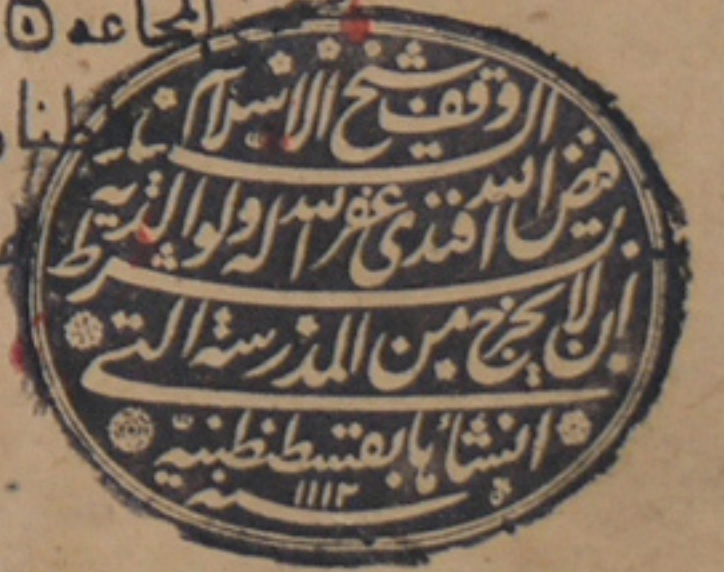 المجاعه ٥
وقف شيخ الاسلام السيد
فيض الله افندى غفر الله له ولوالديه
بشرط ان لا يخرج من المدرسة التى
انشأها بقسطنطنية
سنه ١١١٢